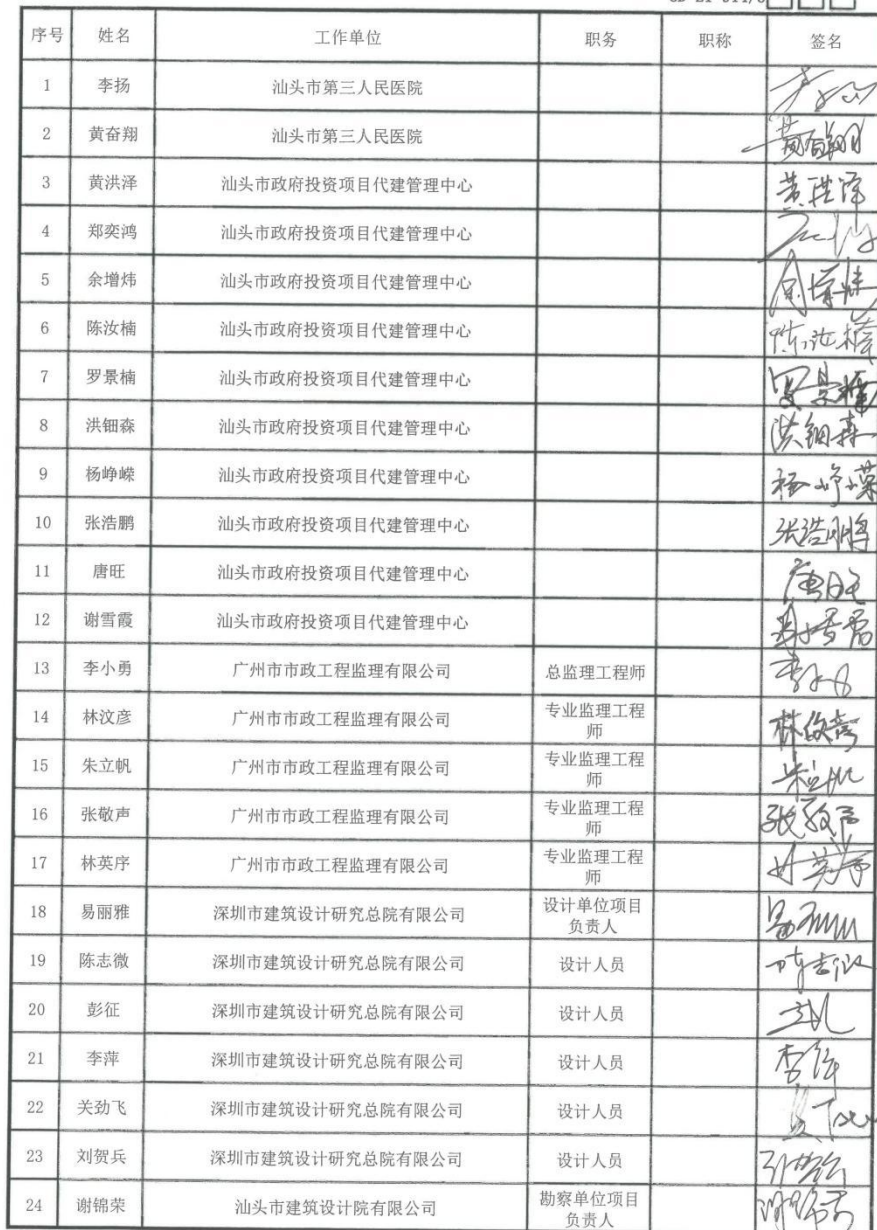 序号 姓名 工作单位 职务 职称 签名
1 李扬 汕头市第三人民医院
2 黄奋翔 汕头市第三人民医院 黄奋翔
3 黄洪泽 汕头市政府投资项目代建管理中心 黄洪泽
4 郑奕鸿 汕头市政府投资项目代建管理中心
5 余增炜 汕头市政府投资项目代建管理中心 余增炜
6 陈汝楠 汕头市政府投资项目代建管理中心 陈汝楠
7 罗景楠 汕头市政府投资项目代建管理中心 罗景楠
8 洪钿森 汕头市政府投资项目代建管理中心 洪钿森
9 杨峥嵘 汕头市政府投资项目代建管理中心 杨峥嵘
10 张浩鹏 汕头市政府投资项目代建管理中心 张浩鹏
11 唐旺 汕头市政府投资项目代建管理中心 唐旺
12 谢雪霞 汕头市政府投资项目代建管理中心
13 李小勇 广州市市政工程监理有限公司 总监理工程师
14 林汶彦 广州市市政工程监理有限公司 专业监理工程
师 林汶彦
15 朱立帆 广州市市政工程监理有限公司 专业监理工程
师 朱立帆
16 张敬声 广州市市政工程监理有限公司 专业监理工程
师 张敬声
17 林英序 广州市市政工程监理有限公司 专业监理工程
师 林英序
18 易丽雅 深圳市建筑设计研究总院有限公司 设计单位项目
负责人
19 陈志微 深圳市建筑设计研究总院有限公司 设计人员 陈志微
20 彭征 深圳市建筑设计研究总院有限公司 设计人员
21 李萍 深圳市建筑设计研究总院有限公司 设计人员 李萍
22 关劲飞 深圳市建筑设计研究总院有限公司 设计人员
23 刘贺兵 深圳市建筑设计研究总院有限公司 设计人员
24 谢锦荣 汕头市建筑设计院有限公司 勘察单位项目
负责人